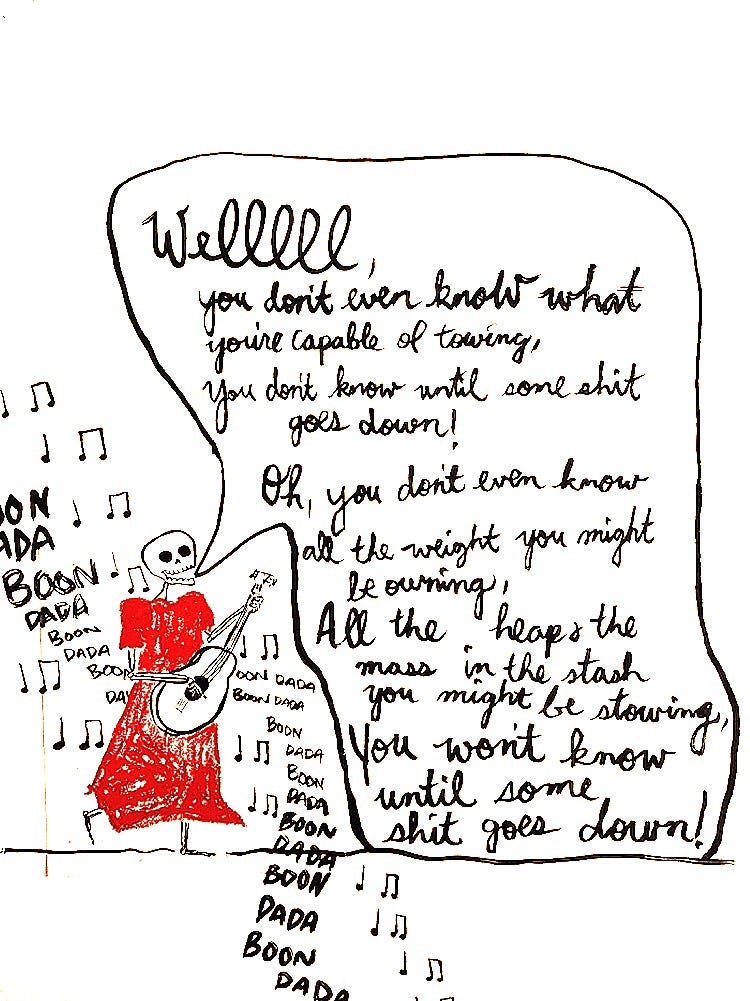 Welllll,
you don't even know what
you're capable of towing,
you don't know until some shit
goes down!
Oh, you don't even know
all the weight you might
be owning,
All the heaps the
mass in the stash
you might be stowing,
You won't know
until some
shit goes down!
OON
ADA
BOON
DADA
BOON
DADA
BOON
DA
OON DADA
BOON DADA
BOON
DADA
BOON
DADA
BOON
DADA
BOON
DADA
BOON
DADA